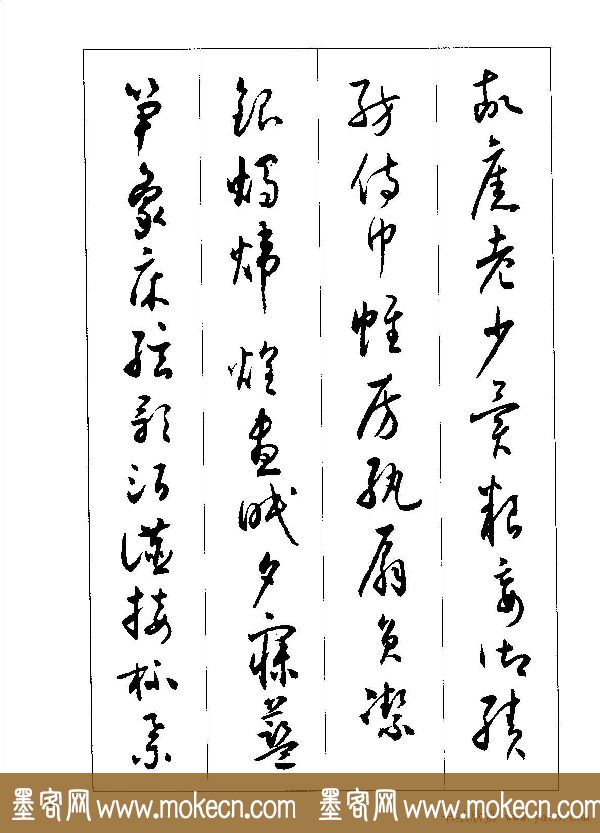 故舊老少異粮妾御績
紡侍巾帷房紈扇員潔
銀燭煒煌晝眠夕寐藍
笋象床絃歌酒讌接杯舉
墨客网 www.mokecn.com 墨客网 www.mokecn.com